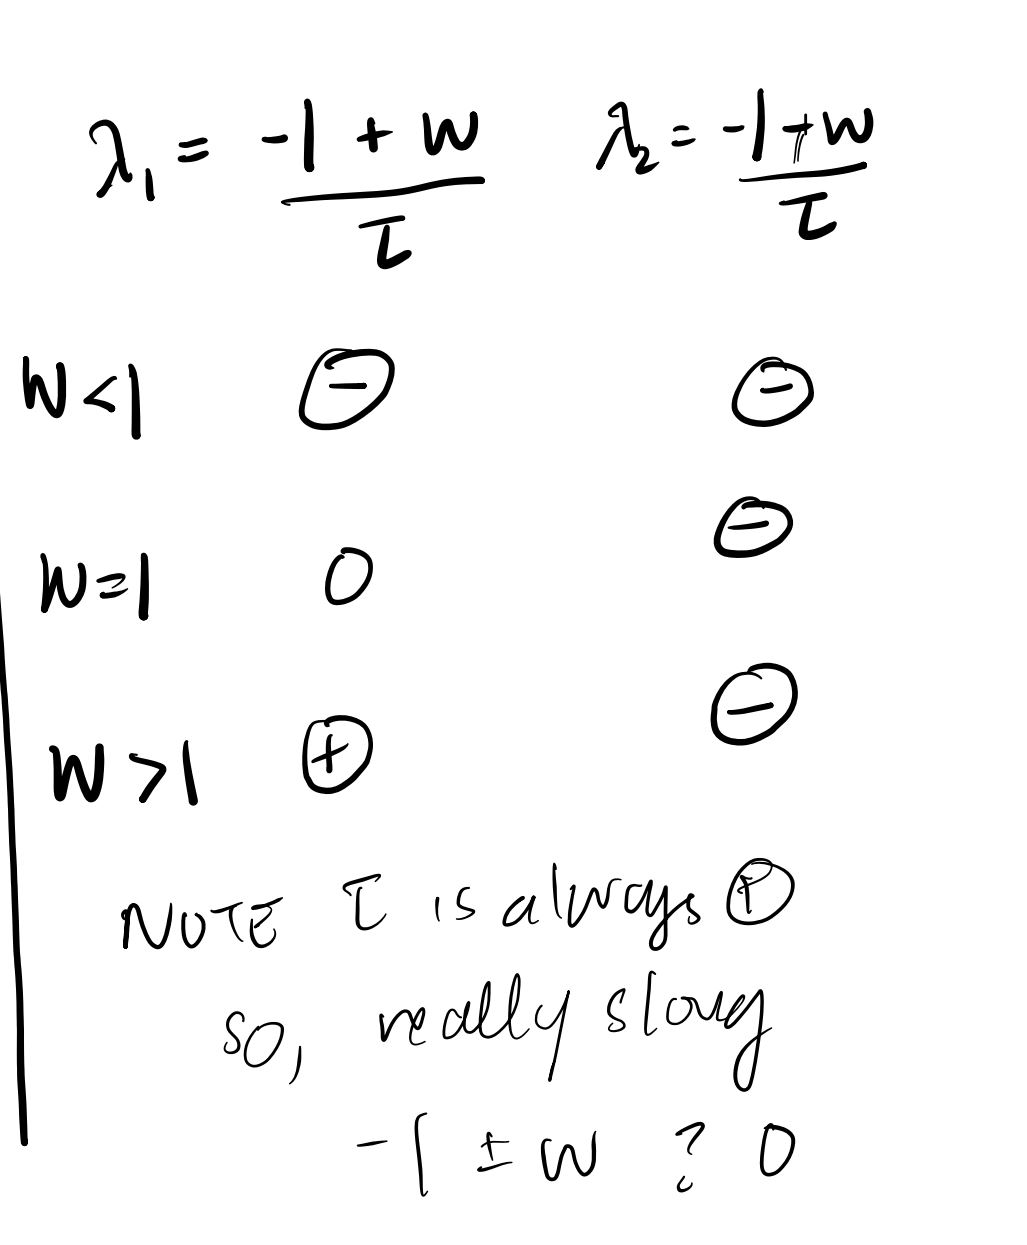 λ₁ = (-1 + w)/τ λ₂ = (-1 - w)/τ
w<1 ⊖ ⊖
w=1 0 ⊖
w>1 ⊕ ⊖
NOTE τ is always ⊕
so, really
-1 ± w ? 0